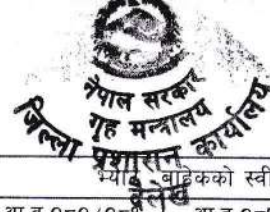 नेपाल सरकार
गृह मन्त्रालय
जिल्ला प्रशासन कार्यालय
दैलेख
भ्याट बाहेकको स्वी